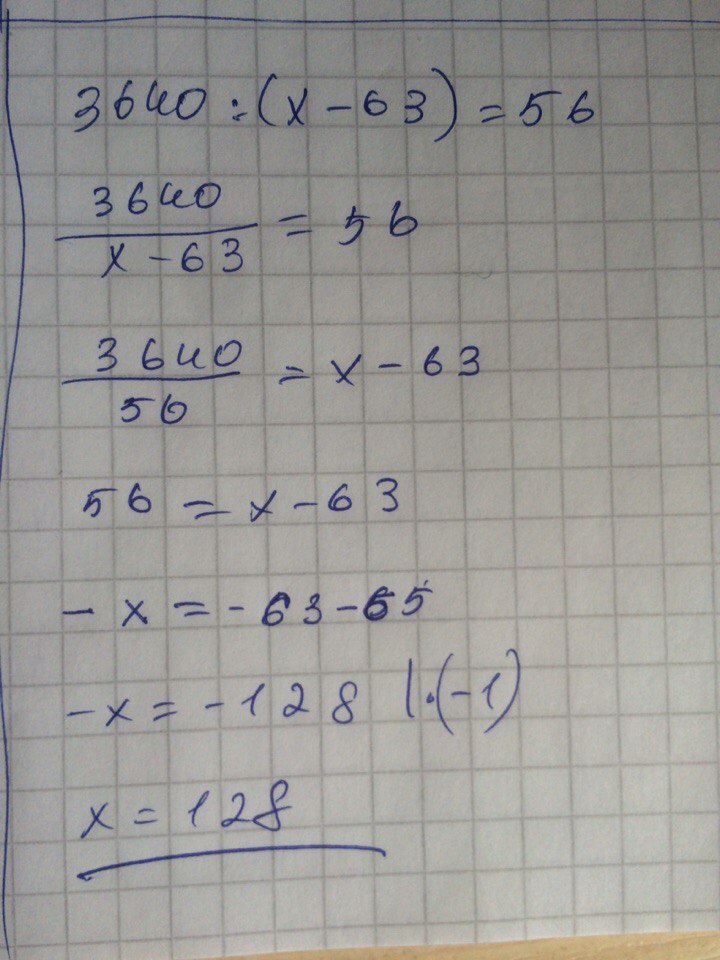 3640 : (x - 63) = 56
3640 / x - 63 = 56
3640 / 56 = x - 63
56 = x - 63
- x = - 63 - 65
- x = - 128 | · (-1)
x = 128